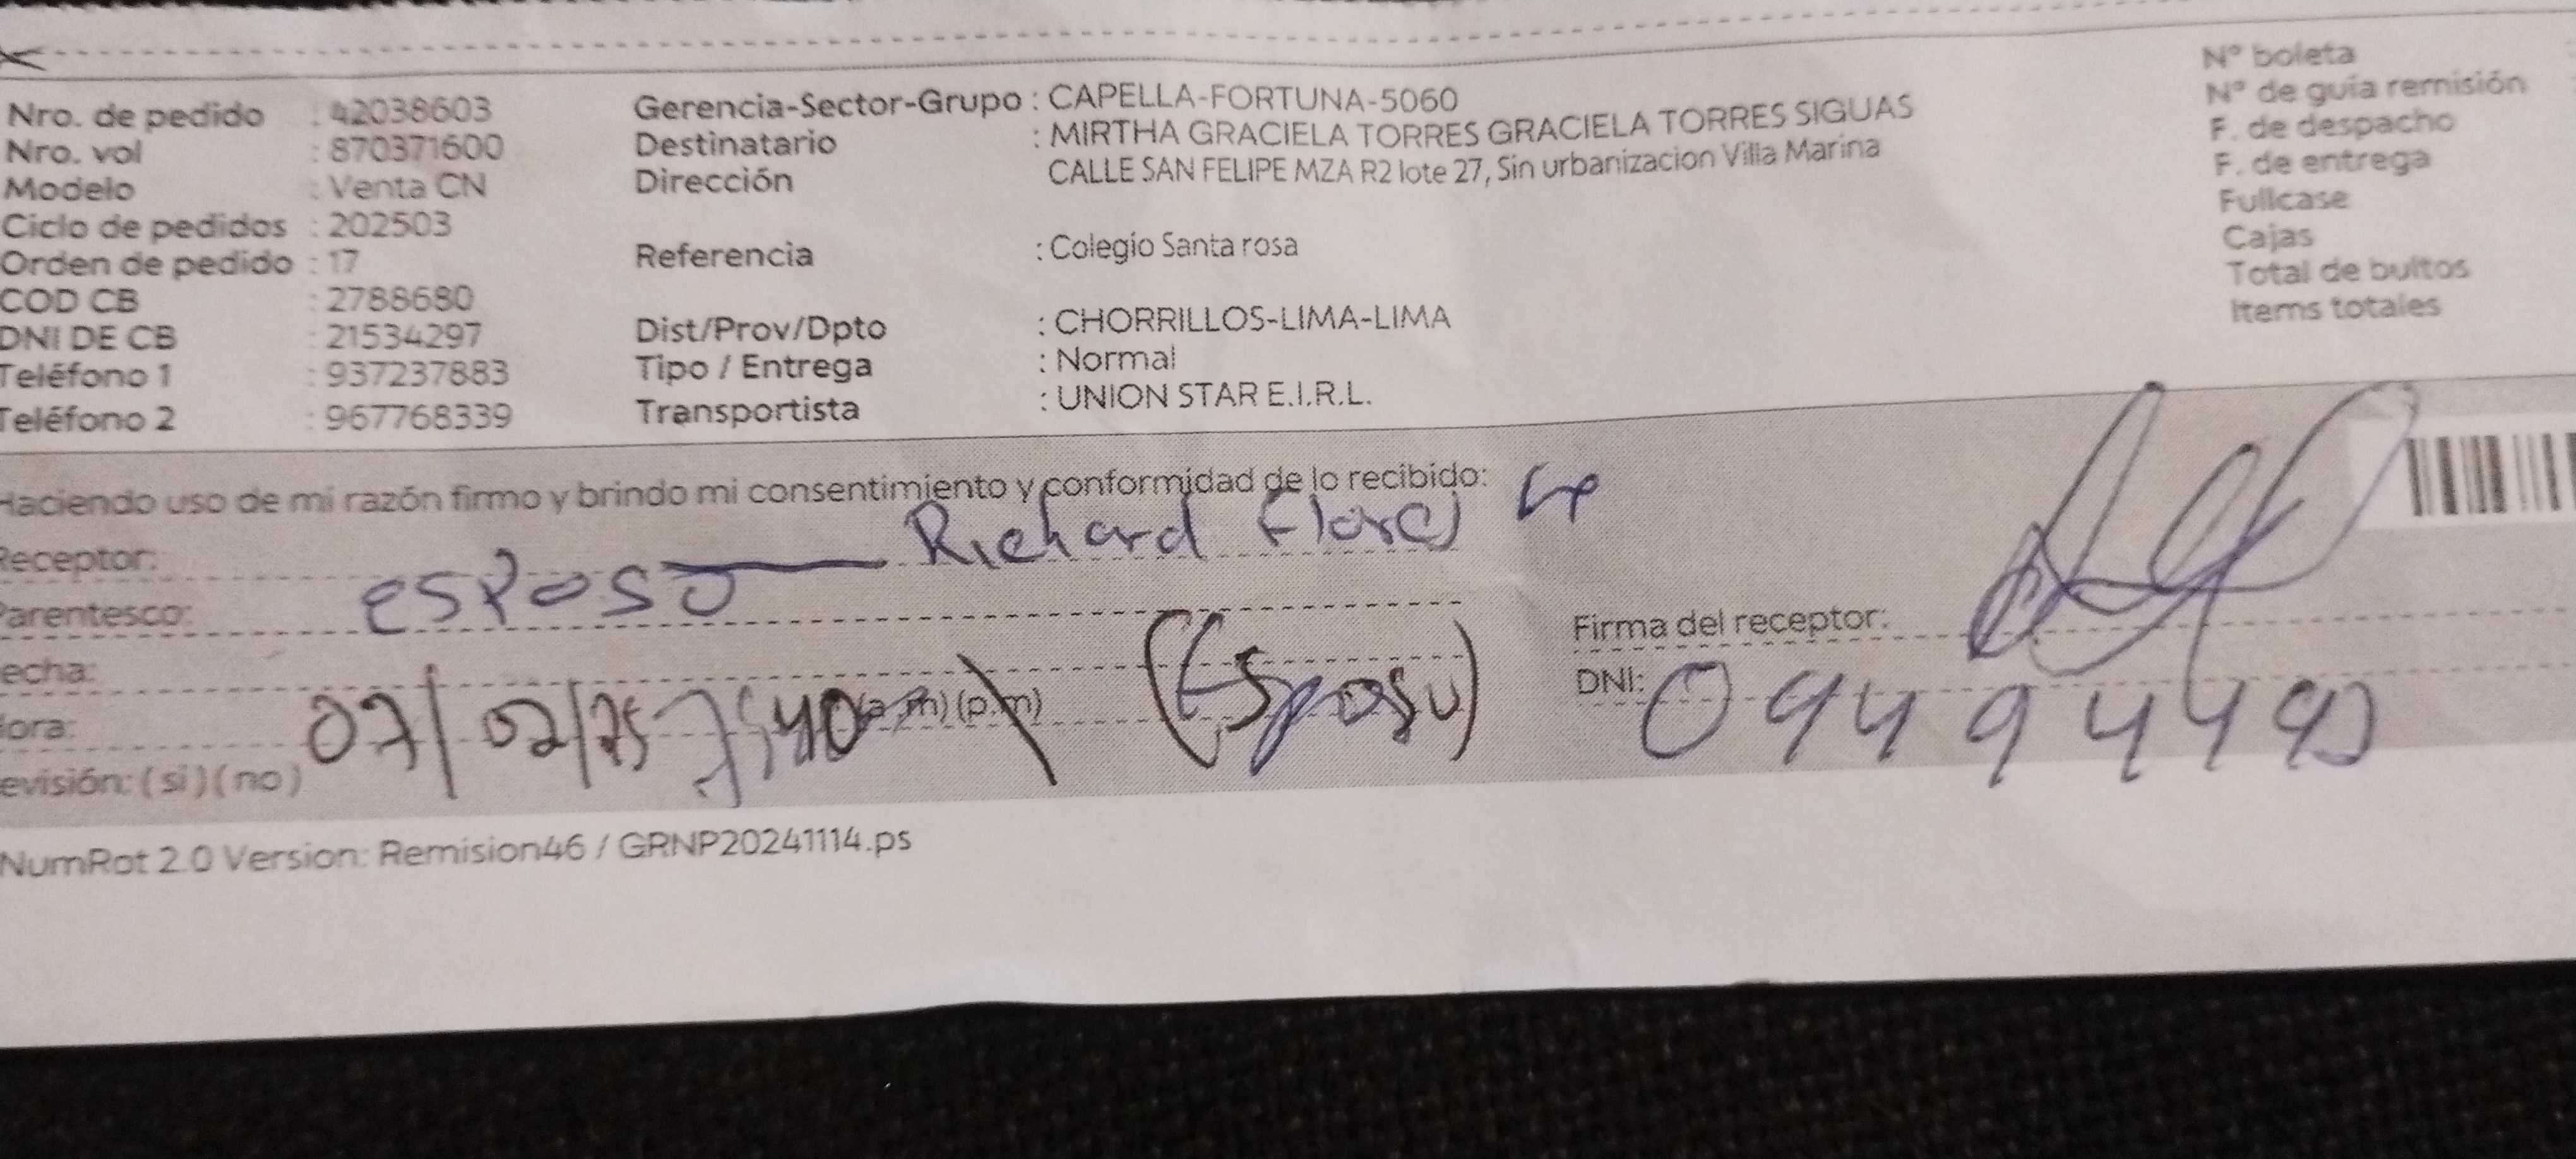 Nro. de pedido : 42038603
Nro. vol : 870371600
Modelo : Venta CN
Ciclo de pedidos : 202503
Orden de pedido : 17
COD CB : 2788680
DNI DE CB : 21534297
Teléfono 1 : 937237883
Teléfono 2 : 967768339
Gerencia-Sector-Grupo : CAPELLA-FORTUNA-5060
Destinatario : MIRTHA GRACIELA TORRES GRACIELA TORRES SIGUAS
Dirección CALLE SAN FELIPE MZA R2 lote 27, Sin urbanizacion Villa Marina
Referencia : Colegio Santa rosa
Dist/Prov/Dpto : CHORRILLOS-LIMA-LIMA
Tipo / Entrega : Normal
Transportista : UNION STAR E.I.R.L.
N° boleta
N° de guía remisión
F. de despacho
F. de entrega
Fullcase
Cajas
Total de bultos
Items totales
Haciendo uso de mi razón firmo y brindo mi consentimiento y conformidad de lo recibido:
Receptor: Richard Flores
Parentesco: esposo
echa: 07/02/25
ora: 7:40 (a.m) (p.m) (Esposo)
evisión: (si) (no)
Firma del receptor:
DNI:
NumRot 2.0 Version: Remision46 / GRNP20241114.ps